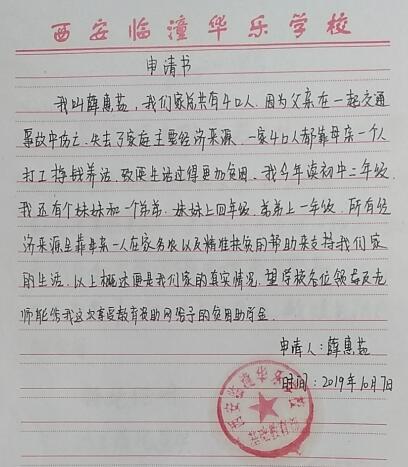 西安临潼华乐学校
申请书
我叫薛惠茹，我们家总共有4口人.因为父亲在一起交通
事故中伤亡.失去了家庭主要经济来源.一家4口人都靠母亲一个人
打工挣钱养活.致使生活过得更加贫困.我今年读初中二年级.
我还有个妹妹和一个弟弟.妹妹上四年级.弟弟上一年级.所有经
济来源全靠母亲一人在家务农以及精准扶贫的帮助来支持我们家
的生活.以上概述便是我们家的真实情况.望学校各位领导及老
师能给我这次享受教育资助网给予的贫困助学金.
申请人:薛惠茹
时间:2019年10月7日
西安临潼华乐学校